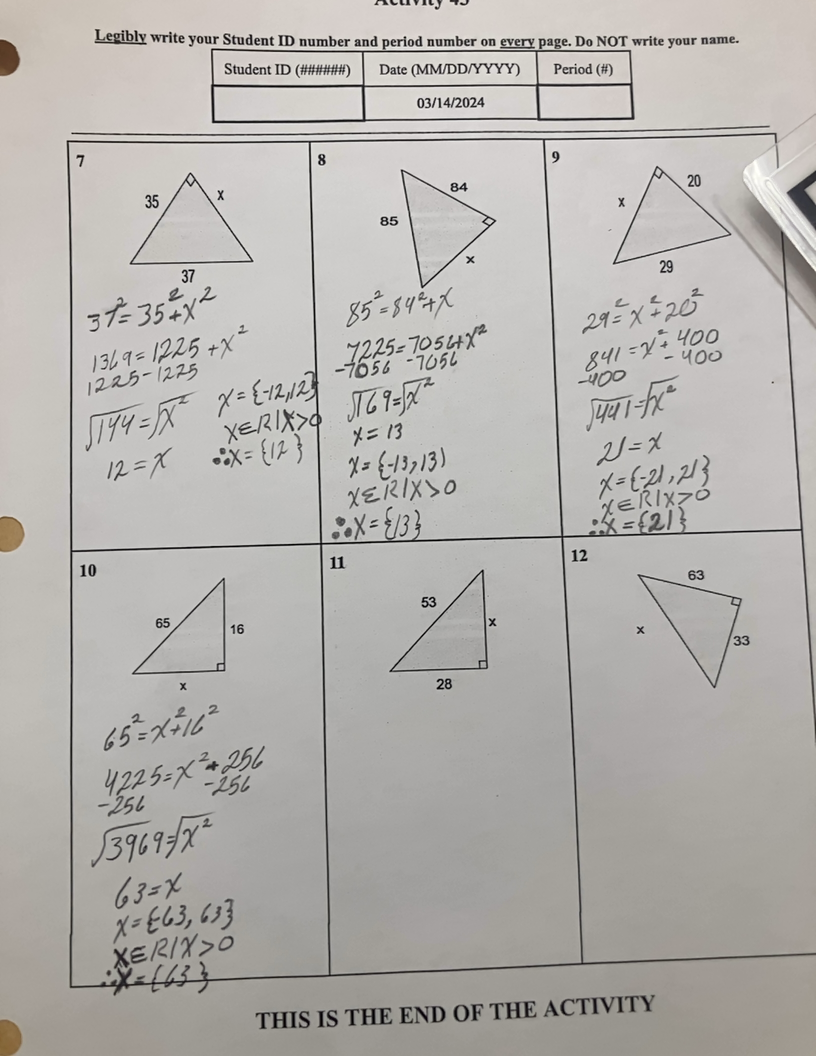 Activity 45
Legibly write your Student ID number and period number on every page. Do NOT write your name.
Student ID (######) Date (MM/DD/YYYY) Period (#)
03/14/2024
7
35 x
37
37² = 35² + x²
1369 = 1225 + x²
1225 - 1225
√144 = √x²
12 = x
x = {-12, 12}
x ∈ R | x > 0
∴ x = {12}
8
84
85
x
85² = 84² + x
7225 = 7056 + x²
-7056 -7056
√169 = √x²
x = 13
x = {-13, 13)
x ∈ R | x > 0
∴ x = {13}
9
20
x
29
29² = x² + 20²
841 = x² + 400
-400 - 400
√441 = √x²
21 = x
x = {-21, 21}
x ∈ R | x > 0
∴ x = {21}
10
65 16
x
65² = x² + 16²
4225 = x² + 256
-256 -256
√3969 = √x²
63 = x
x = {-63, 63}
x ∈ R | x > 0
∴ x = {63}
11
53
x
28
12
63
x 33
THIS IS THE END OF THE ACTIVITY